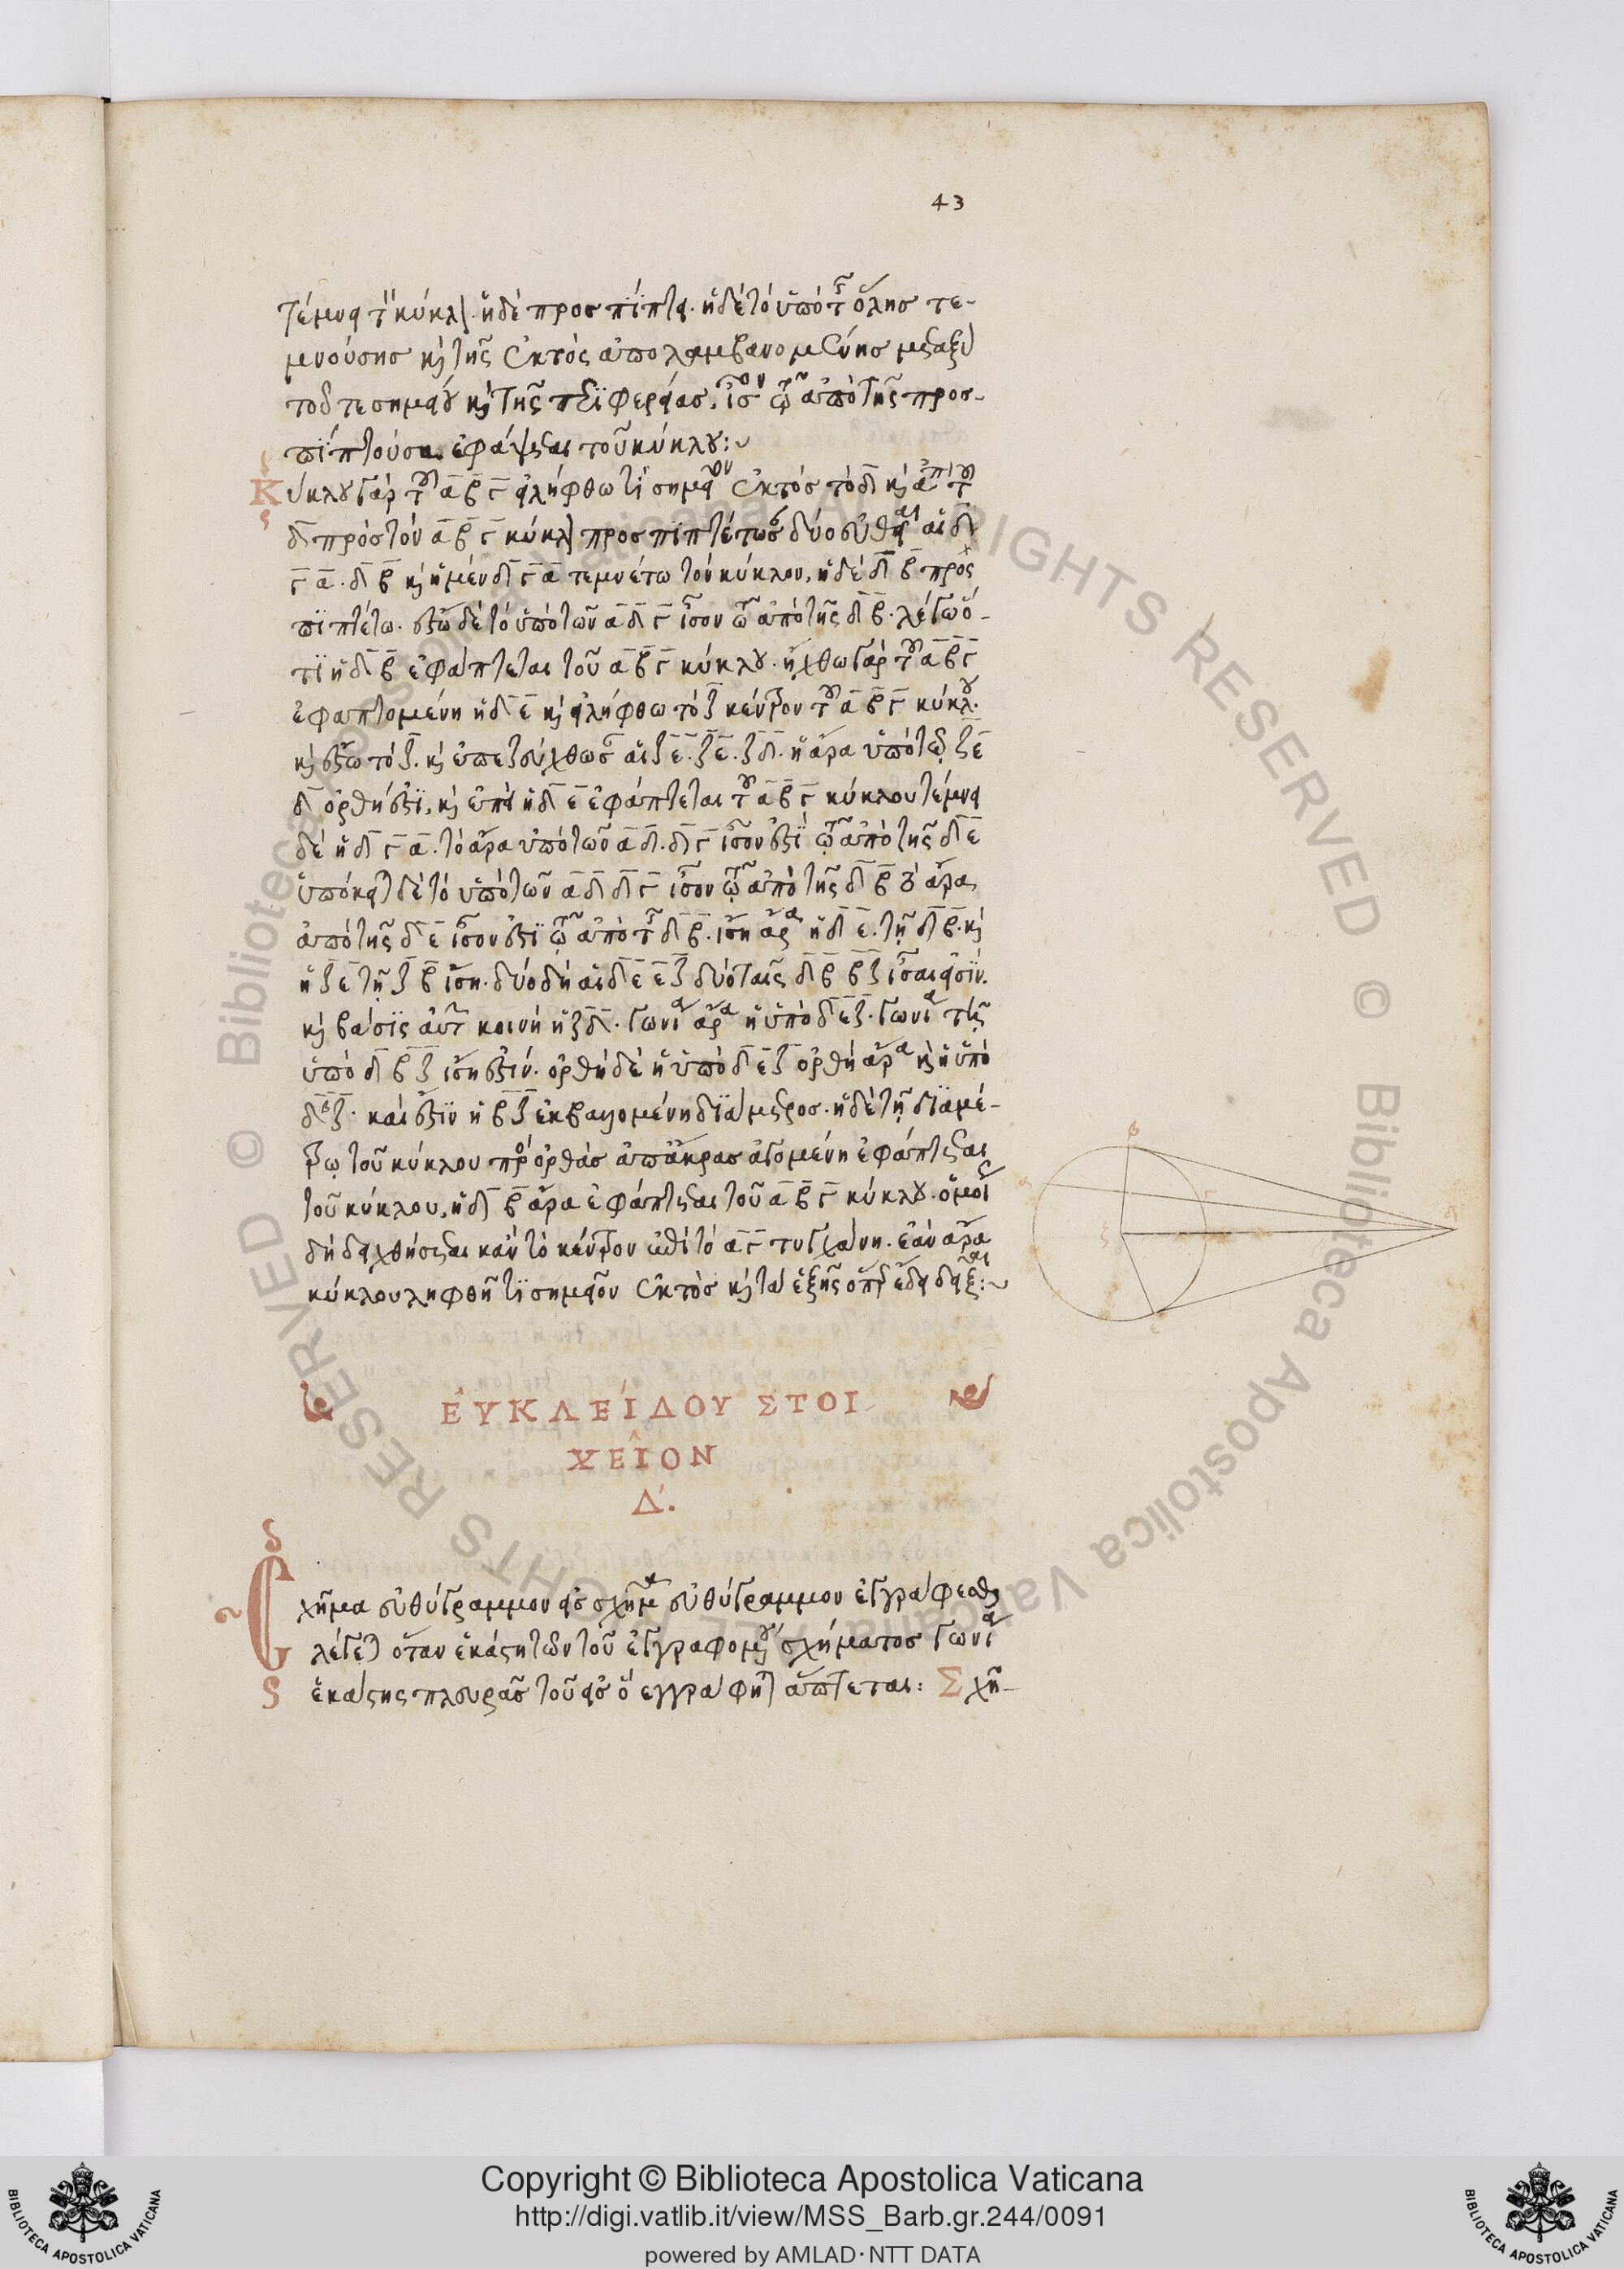 43
τέμνει τὸν κύκλον. ἡ δὲ προσπίπτει. ἢ δὲ τὸ ὑπὸ τῆς ὅλης τε-
μνούσης καὶ τῆς ἐκτὸς ἀπολαμβανομένης μεταξὺ
τοῦ τε σημείου καὶ τῆς περιφερείας. ἴσον τῷ ἀπὸ τῆς προσ-
πιπτούσης ἐφάψεται τοῦ κύκλου:~
Κύκλου γὰρ τοῦ α β γ εἰλήφθω τι σημεῖον ἐκτὸς τὸ δ καὶ ἀπὸ τοῦ
δ πρὸς τὸν α β γ κύκλον προσπιπτέτωσαν δύο εὐθεῖαι αἱ δ
γ α. δ β καὶ ἡ μὲν δ γ α τεμνέτω τὸν κύκλον, ἡ δὲ δ β προσ
πιπτέτω. ἔστω δὲ τὸ ὑπὸ τῶν α δ γ ἴσον τῷ ἀπὸ τῆς δ β. λέγω ὅ-
τι ἡ δ β ἐφάπτεται τοῦ α β γ κύκλου. ἤχθω γὰρ τοῦ α β γ
ἐφαπτομένη ἡ δ ε καὶ εἰλήφθω τὸ ζ κέντρον τοῦ α β γ κύκλου.
καὶ ἔστω τὸ ζ. καὶ ἐπεζεύχθωσαν αἱ ζ ε. ζ ε. ζ δ. ἡ ἄρα ὑπὸ τῶν ζ ε
δ ὀρθή ἐστι, καὶ ἐπεὶ ἡ δ ε ἐφάπτεται τοῦ α β γ κύκλου τέμνει
δὲ ἡ δ γ α. τὸ ἄρα ὑπὸ τῶν α δ. δ γ ἴσον ἐστὶ τῷ ἀπὸ τῆς δ ε
ὑπόκειται δὲ τὸ ὑπὸ τῶν α δ δ γ ἴσον τῷ ἀπὸ τῆς δ β τὸ ἄρα
ἀπὸ τῆς δ ε ἴσον ἐστὶ τῷ ἀπὸ τῆς δ β. ἴση ἄρα ἡ δ ε. τῇ δ β. καὶ
ἡ ζ ε τῇ ζ β ἴση. δύο δὴ αἱ δ ε ε ζ δυσὶ ταῖς δ β β ζ ἴσαι εἰσίν.
καὶ βάσις αὐτῶν κοινὴ ἡ ζ δ. γωνία ἄρα ἡ ὑπὸ δ ε ζ. γωνίᾳ τῇ
ὑπὸ δ β ζ ἴση ἐστίν. ὀρθὴ δὲ ἡ ὑπὸ δ ε ζ ὀρθὴ ἄρα καὶ ἡ ὑπὸ
δ β ζ. καί ἐστιν ἡ β ζ ἐκβαλλομένη διάμετρος. ἡ δὲ τῇ διαμέ-
τρῳ τοῦ κύκλου πρὸς ὀρθὰς ἀπ ἄκρας ἀγομένη ἐφάπτεται
τοῦ κύκλου, ἡ δ β ἄρα ἐφάπτεται τοῦ α β γ κύκλου. ὁμοίως
δὴ δειχθήσεται κἂν τὸ κέντρον ἐπὶ τὸ α γ τυγχάνῃ. ἐὰν ἄρα
κύκλου ληφθῇ τι σημεῖον ἐκτὸς καὶ τὰ ἑξῆς ὅπερ ἔδει δεῖξαι:~
β
α
γ
δ
ζ
ε
ΕΥΚΛΕΊΔΟΥ ΣΤΟΙ
ΧΕΙ͂ΟΝ
Δ΄.
Σχῆμα εὐθύγραμμον εἰς σχῆμα εὐθύγραμμον ἐγγράφεσθαι
λέγεται ὅταν ἑκάστη τῶν τοῦ ἐγγραφομένου σχήματος γωνία
ἑκάστης πλευρᾶς τοῦ εἰς ὃ ἐγγράφηται ἅπτεται: Σχῆ-
Copyright © Biblioteca Apostolica Vaticana
http://digi.vatlib.it/view/MSS_Barb.gr.244/0091
powered by AMLAD·NTT DATA
BIBLIOTECA APOSTOLICA VATICANA
BIBLIOTECA APOSTOLICA VATICANA
© Biblioteca Apostolica Vaticana ALL RIGHTS RESERVED © Biblioteca Apostolica Vaticana ALL RIGHTS RESERVED